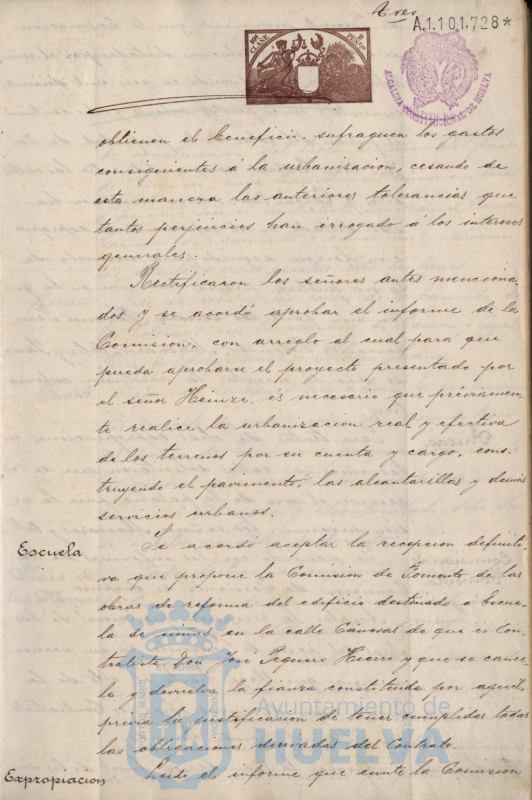 Tres
A.1.101.728*
10ª CLASE
2 PESETAS
ALCALDIA CONSTITUCIONAL DE HUELVA
obtienen el beneficio, sufraguen los gastos
consiguientes á la urbanizacion, cesando de
esta manera las anteriores tolerancias que
tantos perjuicios han irrogado á los intereses
generales.
Rectificaron los señores antes menciona-
dos y se acordó aprobar el informe de la
Comision, con arreglo al cual para que
pueda aprobarse el proyecto presentado por
el señor Heinze, es necesario que préviamen-
te realice la urbanizacion real y efectiva
de los terrenos por su cuenta y cargo, cons-
truyendo el pavimento, las alcantarillas y demás
servicios urbanos.
Escuela
Se acordó aceptar la recepcion definiti-
va que propone la Comision de Fomento de las
obras de reforma del edificio destinado a Escue-
la de niños en la calle Cánovas de que es Con-
tratista Don José Hierro y que se cance-
le y devuelva la fianza constituida por aquel,
prévia la justificacion de tener cumplidas todas
las obligaciones derivadas del Contrato.
Ayuntamiento de
HUELVA
Expropiacion
Leido el informe que emite la Comision